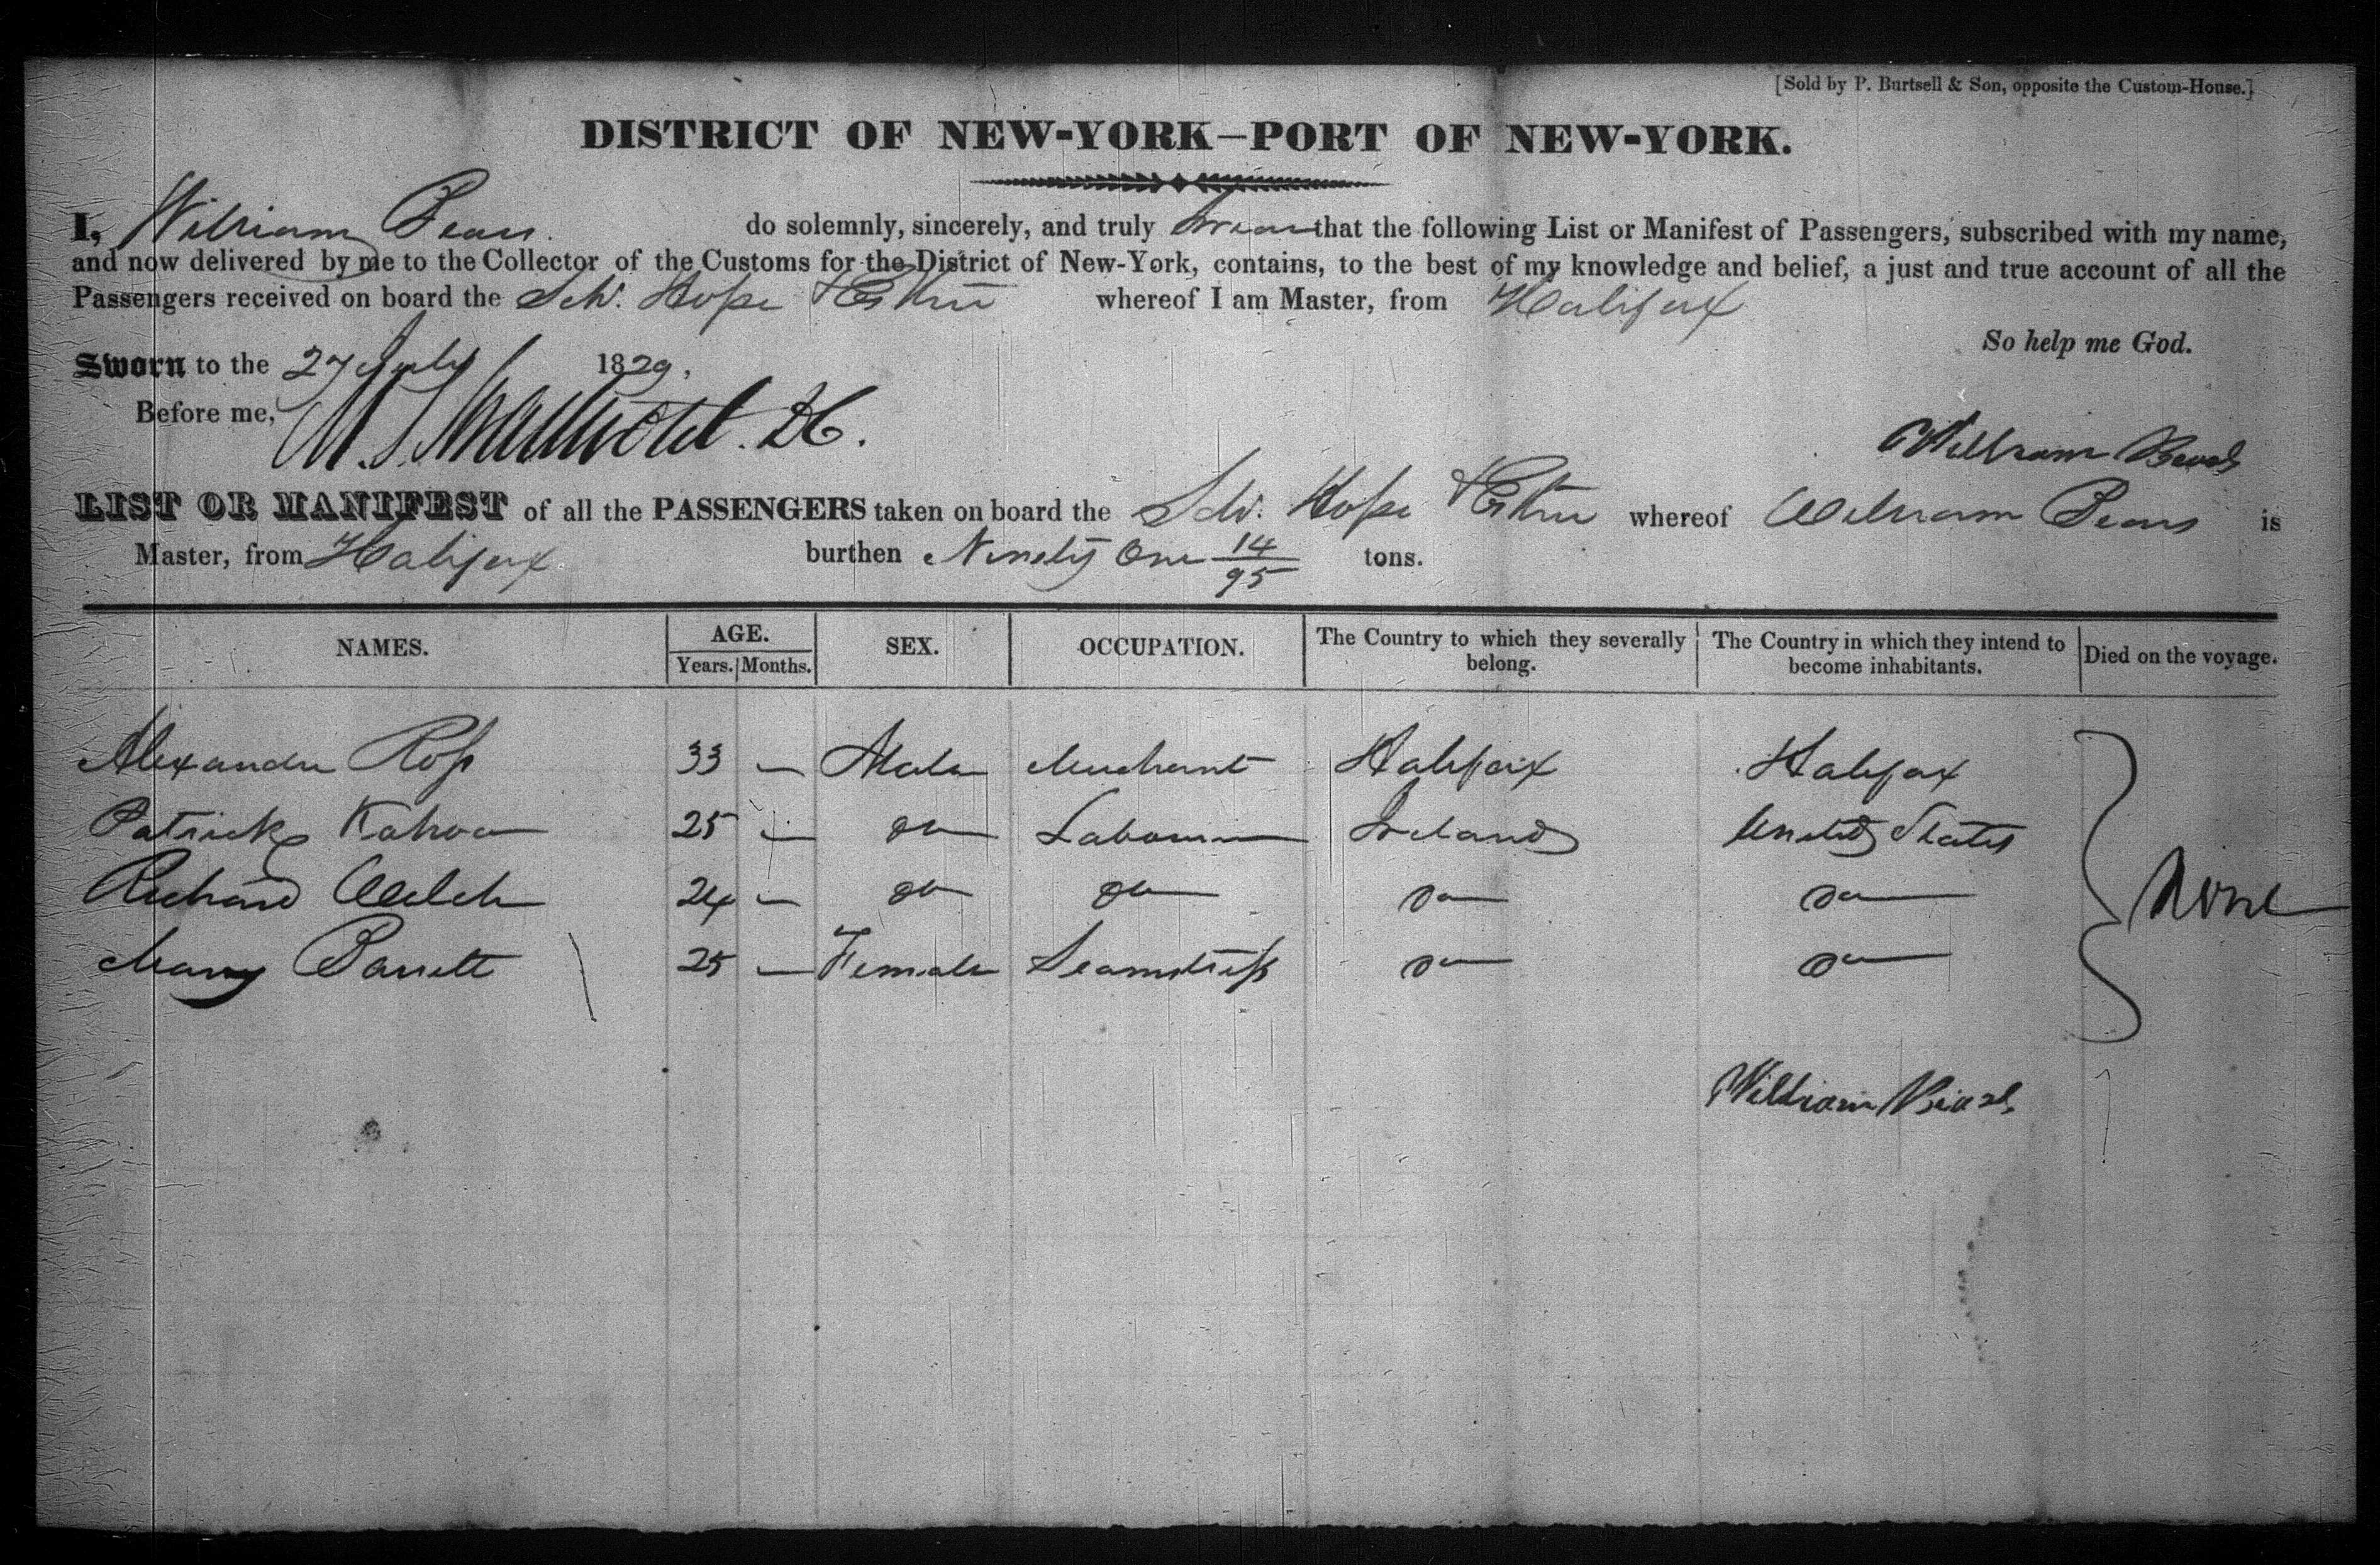 [Sold by P. Burtsell & Son, opposite the Custom-House.]
DISTRICT OF NEW-YORK—PORT OF NEW-YORK.
I, William Pears. do solemnly, sincerely, and truly swear that the following List or Manifest of Passengers, subscribed with my name,
and now delivered by me to the Collector of the Customs for the District of New-York, contains, to the best of my knowledge and belief, a just and true account of all the
Passengers received on board the Schr. Hope & Esther whereof I am Master, from Halifax
So help me God.
Sworn to the 27 July 1829.
Before me, DC.
William
LIST OR MANIFEST of all the PASSENGERS taken on board the Schr. Hope & Esther whereof William Pears is
Master, from Halifax burthen Ninety One 14/95 tons.
NAMES. AGE. SEX. OCCUPATION. The Country to which they severally belong. The Country in which they intend to become inhabitants. Died on the voyage.
Years. Months.
Alexander Ross 33 — Male Merchant Halifax Halifax
Patrick 25 — do Labourer Ireland United States
Richard Welch 24 — do do do do
Mary Barrett 25 — Female Seamstress do do
None
William